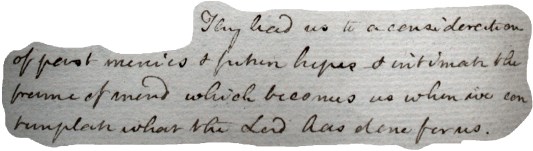 They lead us to a consideration
of past mercies & future hopes & intimate the
frame of mind which becomes us when we con
template what the Lord has done for us.